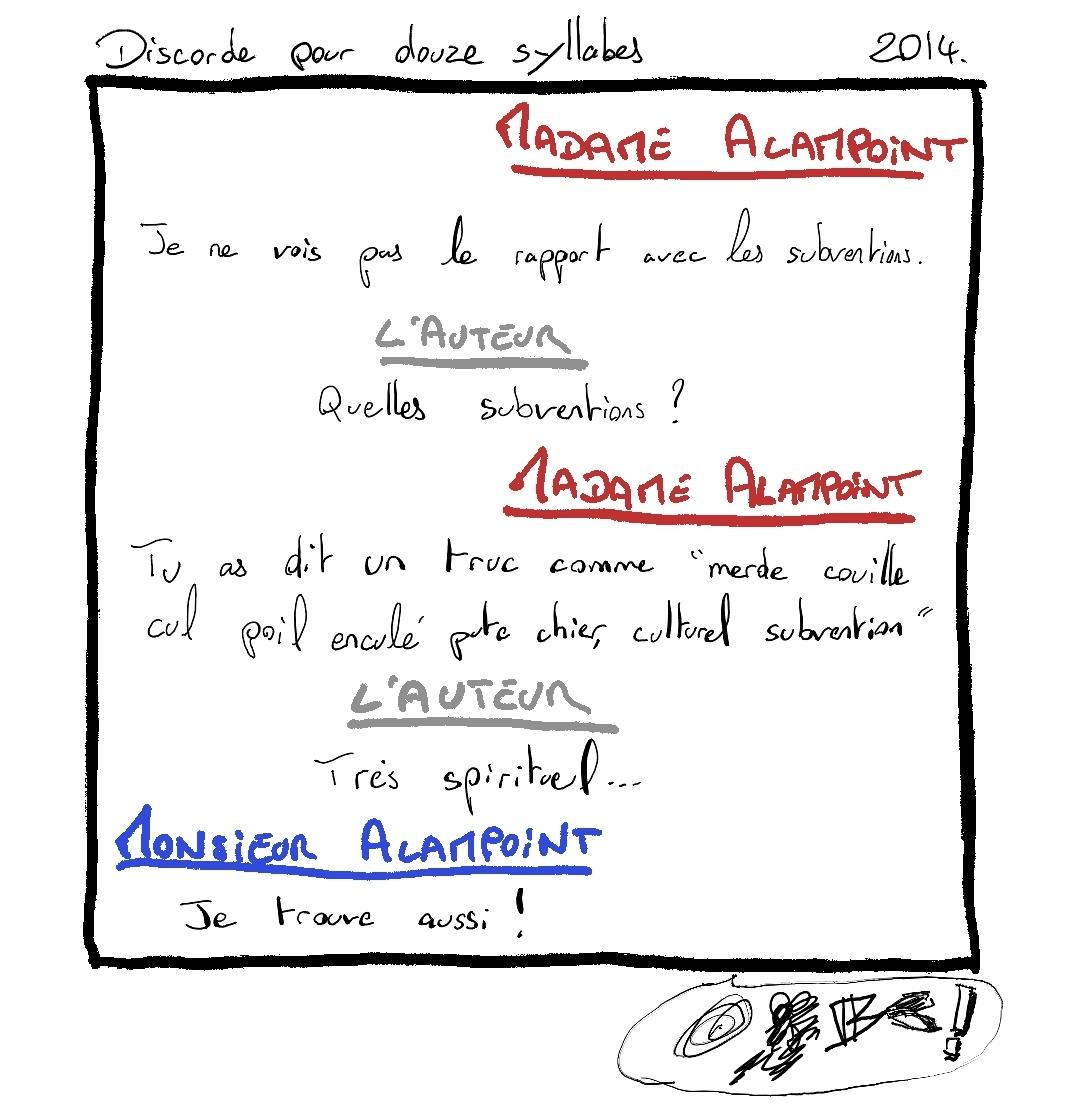 Discorde pour douze syllabes 2014.
MADAME ALAMPOINT
Je ne vois pas le rapport avec les subventions.
L'AUTEUR
Quelles subventions ?
MADAME ALAMPOINT
Tu as dit un truc comme "merde couille
cul poil enculé pute chier, culturel subvention"
L'AUTEUR
Très spirituel...
MONSIEUR ALAMPOINT
Je trouve aussi !